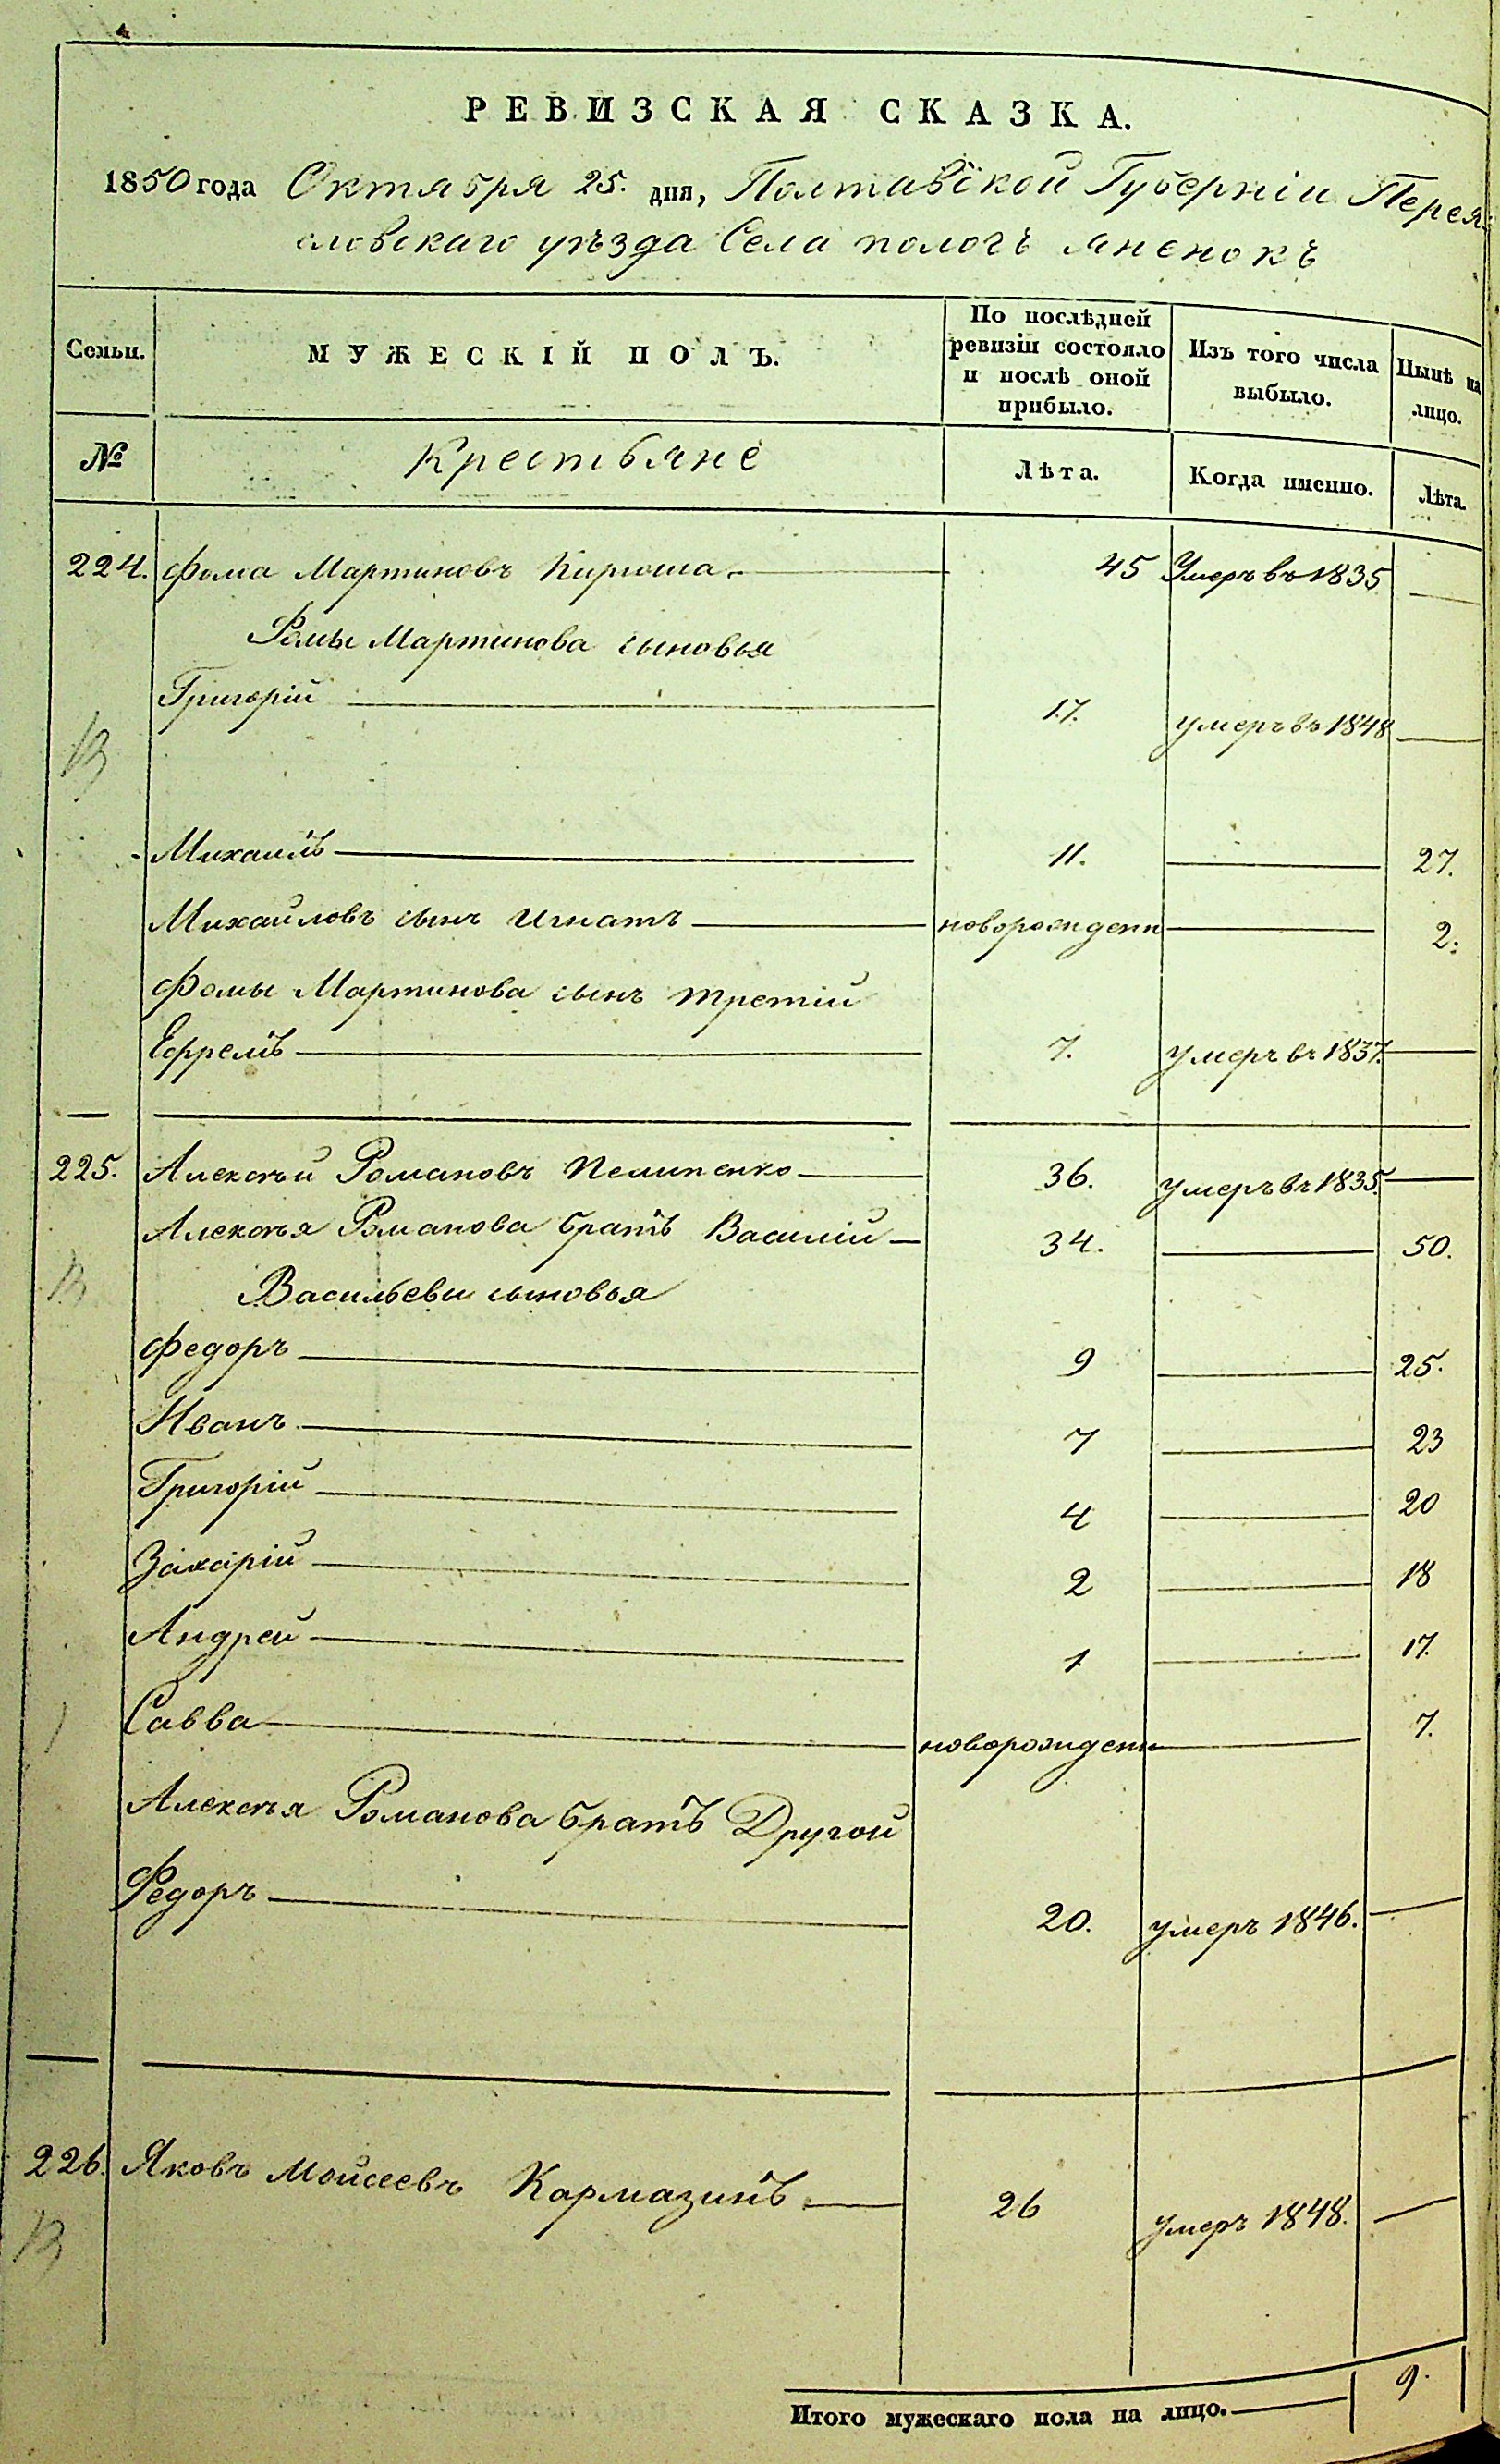 РЕВИЗСКАЯ СКАЗКА.
1850 года Октября 25. дня, Полтавской Губерніи Перея-
словскаго уѣзда Села пологъ Яненокъ
Семьи.
МУЖЕСКІЙ ПОЛЪ.
По послѣдней ревизіи состояло и послѣ оной прибыло.
Изъ того числа выбыло.
Нынѣ на лицо.
№ Крестьяне Лѣта. Когда именно. Лѣта.
224. Фома Мартиновъ Кирюша 45 Умеръ въ 1835
Фомы Мартинова сыновья
Григорій 17. умеръ въ 1848
Михаилъ 11. 27.
Михайловъ сынъ Игнатъ новорожденн 2.
Фомы Мартинова сынъ третій
Ефремъ 7. умеръ въ 1837.
225. Алексѣй Романовъ Пелипенко 36. умеръ въ 1835.
Алексѣя Романова братъ Василій 34. 50.
Васильевы сыновья
Федоръ 9 25.
Иванъ 7 23
Григорій 4 20
Захарій 2 18
Андрей 1 17.
Савва новорожденн 7.
Алексѣя Романова братъ Другой
Федоръ 20. умеръ 1846.
226. Яковъ Мойсеевъ Кармазинъ 26 умеръ 1848.
Итого мужескаго пола на лицо. 9.